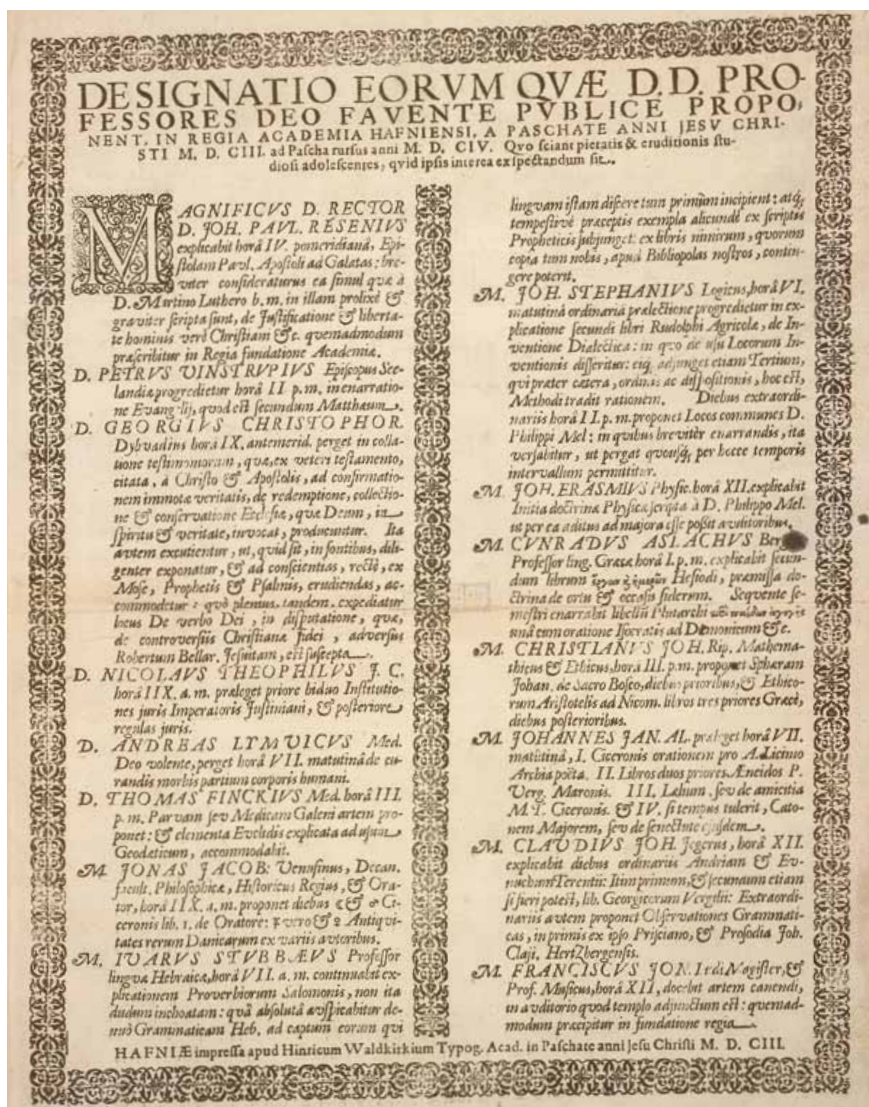 DESIGNATIO EORVM QVÆ D.D. PRO-
FESSORES DEO FAVENTE PVBLICE PROPO,
NENT, IN REGIA ACADEMIA HAFNIENSI, A PASCHATE ANNI JESV CHRI-
STI M. D. CIII. ad Pascha rursus anni M. D. CIV. Qvo sciant pietatis & eruditionis stu-
diosi adolescentes, qvid ipsis interea exspectandum sit.
MAGNIFICVS D. RECTOR
D. JOH. PAVL. RESENIVS
explicabit horâ IV. pomeridianâ, Epi-
stolam Pavl. Apostoli ad Galatas: bre-
viter consideraturus ea simul quæ à
D. Martino Luthero b. m. in illam prolixè &
graviter scripta sunt, de Justificatione & liberta-
te hominis verè Christiani &c. quemadmodum
præscribitur in Regia fundatione Academiæ.
D. PETRVS VINSTRVPIVS Episcopus See-
landiæ progredietur horâ II p. m. in enarratio-
ne Evangelij, quod est secundum Matthæum.
D. GEORGIVS CHRISTOPHOR.
Dybvadius horâ IX. antemerid. perget in colla-
tione testimoniorum, quæ, ex veteri testamento,
citata, à Christo & Apostolis, ad confirmatio-
nem immotæ veritatis, de redemptione, collectio-
ne & conservatione Ecclesiæ, quæ Deum, in
spiritu & veritate, invocat, producuntur. Ita
avtem excutientur, ut, quid sit, in fontibus, dili-
genter exponatur, & ad conscientias, rectè, ex
Mose, Prophetis & Psalmis, erudiendas, ac-
commodetur: quò plenius, tandem, expediatur
locus De verbo Dei, in disputatione, quæ,
de controversiis Christianæ fidei, adversus
Robertum Bellar. Jesuitam, est suscepta.
D. NICOLAVS THEOPHILVS J. C.
horâ IIX. a. m. præleget priore biduo Institutio-
nes juris Imperatoris Justiniani, & posteriore
regulas juris.
D. ANDREAS LEMVICVS Med.
Deo volente, perget horâ VII. matutinâ de cu-
randis morbis partium corporis humani.
D. THOMAS FINCKIVS Med. horâ III.
p. m. Parvam sev Medicam Galeni artem pro-
ponet: & elementa Evclidis explicata ad usum
Geodæticum, accommodabit.
M. JONAS JACOB: Venusinus, Decan.
facult. Philosophicæ, Historicus Regius, & Ora-
tor, horâ IIX. a. m. proponet diebus ☾ & ♂ Ci-
ceronis lib. 1. de Oratore: ☿ vero & ♀ Antiqui-
tates rerum Danicarum ex variis avtoribus.
M. IVARVS STVBBÆVS Professor
lingvæ Hebraicæ, horâ VII. a. m. continuabit ex-
plicationem Proverbiorum Salomonis, non ita
dudum inchoatam: quâ absolutâ avspicabitur de-
nuò Grammaticam Heb. ad captum eorum qui
lingvam istam discere tum primùm incipient: atq;
tempestivè præceptis exempla alicunde ex scriptis
Propheticis subjunget: ex libris nimirum, quorum
copia tum nobis, apud Bibliopolas nostros, contin-
gere poterit.
M. JOH. STEPHANIVS Logicus, horâ VI.
matutinâ ordinariâ prælectione progredietur in ex-
plicatione secundi libri Rudolphi Agricolæ, de In-
ventione Dialectica: in qvo de usu Locorum In-
ventionis disseritur: eiq; adjunget etiam Tertium,
qvi præter cætera, ordinis ac dispositionis, hoc est,
Methodi tradit rationem. Diebus extraordi-
nariis horâ II. p. m. proponet Locos communes D.
Philippi Mel: in quibus breviter enarrandis, ita
versabitur, ut pergat qvousq; per hocce temporis
intervallum permittitur.
M. JOH. ERASMIVS Physic. horâ XII. explicabit
Initia doctrinæ Physicæ scripta à D. Philippo Mel.
ut per ea aditus ad majora esse possit avditoribus.
M. CVNRADVS ASLACHVS
Professor ling. Græcæ horâ I. p. m. explicabit secun-
dum librum Hesiodi, præmissa do-
ctrina de ortu & occasu siderum. Seqvente se-
mestri enarrabit libellũ Plutarchi
unâ cum oratione Isocratis ad Demonicum &c.
M. CHRISTIANVS JOH. Rip. Mathema-
thicus & Ethicus, horâ III. p. m. proponet Sphæram
Johan. de Sacro Bosco, diebus prioribus, & Ethico-
rum Aristotelis ad Nicom. libros tres priores Græcè,
diebus posterioribus.
M. JOHANNES JAN. AL. præleget horâ VII.
matutinâ, I. Ciceronis orationem pro A. Licinio
Archia poëta. II. Libros duos priores Æneidos P.
Verg. Maronis. III. Lælium, sev de amicitia
M. T. Ciceronis. & IV. si tempus tulerit, Cato-
nem Majorem, sev de senectute ejusdem.
M. CLAVDIVS JOH. Jegerus, horâ XII.
explicabit diebus ordinariis Andriam & Ev-
nuchum Terentii: Item primum, & secundum etiam
si fieri potest, lib. Georgicorum Vergilii: Extraordi-
nariis avtem proponet Observationes Grammati-
cas, in primis ex ipso Prisciano, & Prosodia Joh.
Claji. Hertzbergensis.
M. FRANCISCVS JON. Magister, &
Prof. Musicus, horâ XII, docebit artem canendi,
in avditorio quod templo adjunctum est: quemad-
modum præcipitur in fundatione regia.
HAFNIÆ impressa apud Hinricum Waldkirkium Typog. Acad. in Paschate anni Jesu Christi M. D. CIII.